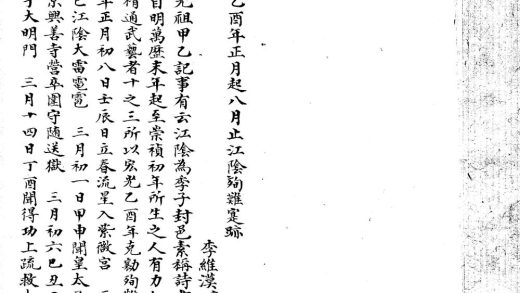 乙酉年正月起八月止江陰殉難寔跡
李維漢
先祖甲乙記事有云江陰為季子封邑素稱詩
自明萬歷末年起至崇禎初年所生之人有力
精通武藝者十之三所以宏光乙酉年克勷殉
年正月初八日壬辰日立春流星入紫微宮
巳江陰大雷電雹 三月初一日甲申聞皇太
京興善寺營卒圍守隨送獄 三月初六巳丑
于大明門 三月十四日丁酉聞得功上疏救